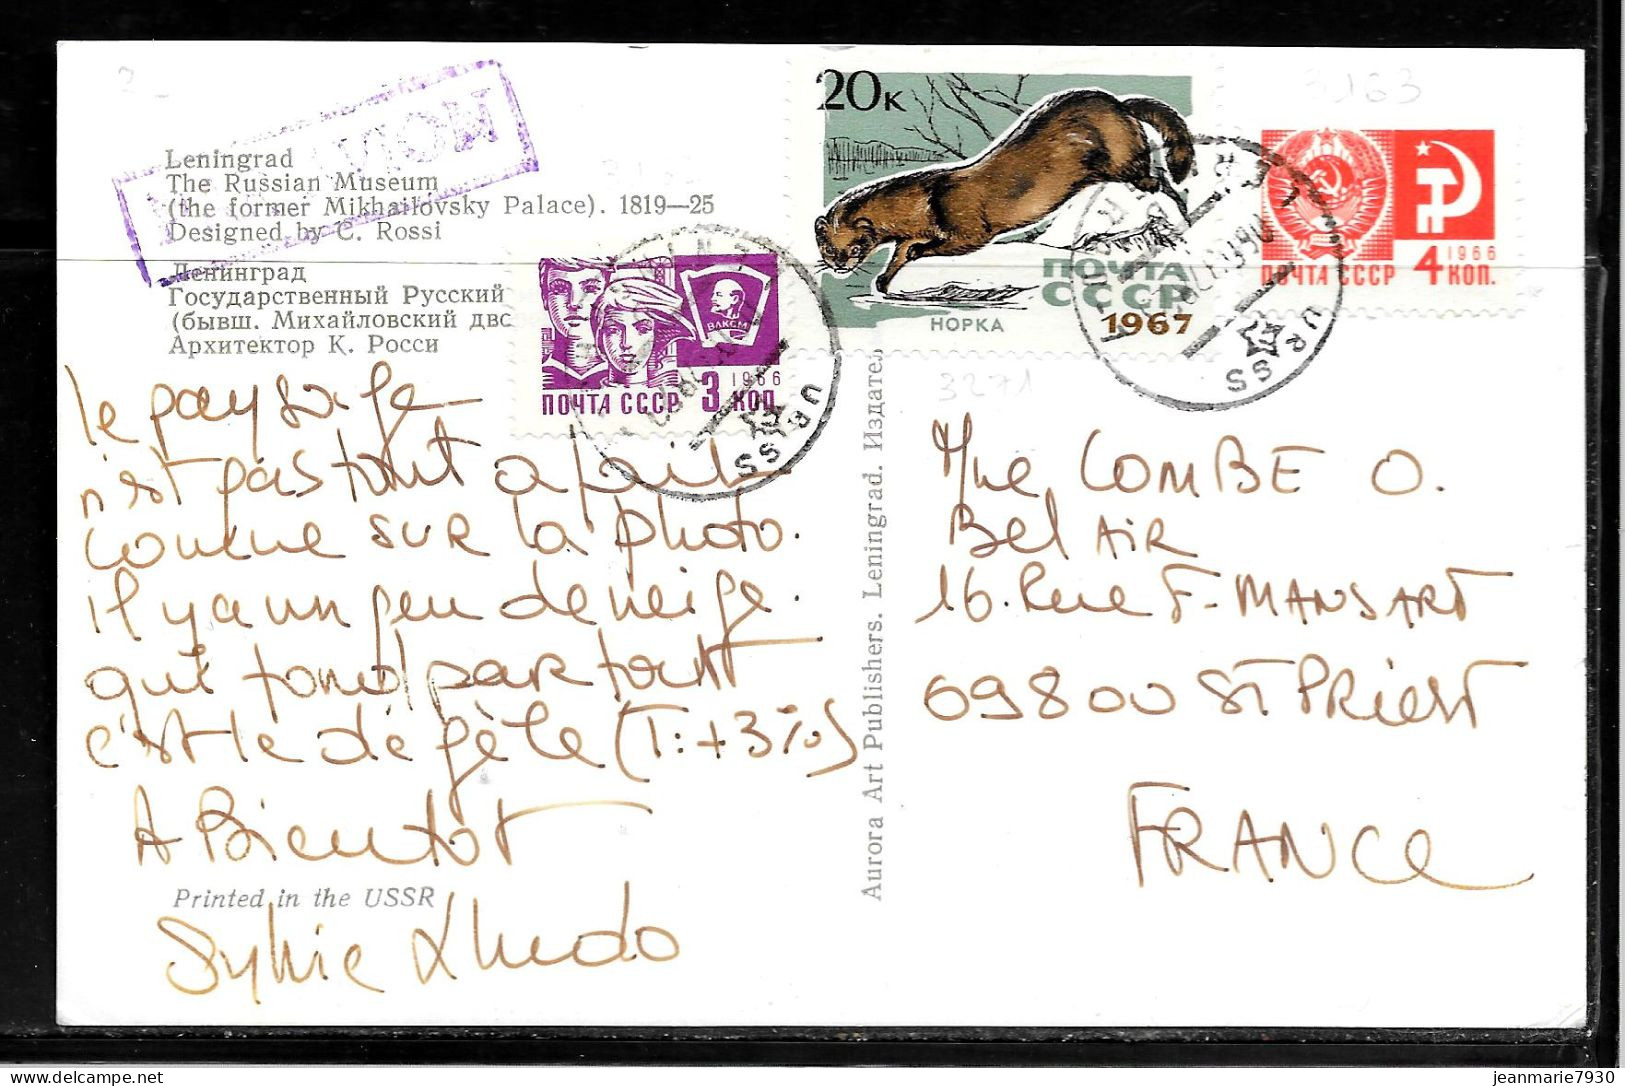 Leningrad
The Russian Museum
(the former Mikhailovsky Palace). 1819—25
Designed by C. Rossi
Ленинград
Государственный Русский
(бывш. Михайловский дво
Архитектор К. Росси
20К
НОРКА
ПОЧТА
СССР
1967
ПОЧТА СССР
4 1966
КОП.
ВЛКСМ
ПОЧТА СССР
3 1966
КОП
URSS
URSS
3163
3271
le paysage
n'est pas tout a fait
comme sur la photo.
Il y a un peu de neige.
qui fond partout
c'est le dégèle (T: +3%)
A Bientot
Sylvie
Printed in the USSR
Aurora Art Publishers. Leningrad. Издател
Mme COMBE O.
Bel AIR
16. Rue F. MANSART
69800 ST PRIEST
FRANCE
jeanmarie7930